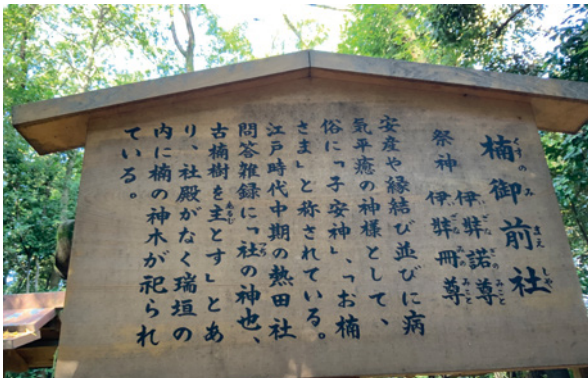 楠御前社
祭神　伊弉諾尊
伊弉冊尊
安産や縁結び並びに病
気平癒の神様として、
俗に「子安神」、「お楠
さま」と称されている。
江戸時代中期の熱田社
問答雑録に「社の神也、
古楠樹を主とす」とあ
り、社殿がなく瑞垣の
内に楠の神木が祀られ
ている。